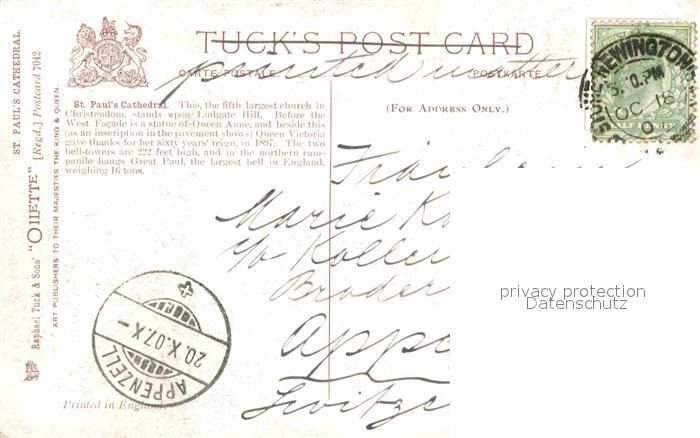 TUCK'S POST CARD
CARTE POSTALE. POSTKARTE.
printed matter
(FOR ADDRESS ONLY.)
St. Paul's Cathedral. This, the fifth largest church in
Christendom, stands upon Ludgate Hill. Before the
West Façade is a statue of Queen Anne, and beside this
(as an inscription in the pavement shows) Queen Victoria
gave thanks for her sixty years' reign, in 1897. The two
bell-towers are 222 feet high, and in the northern cam-
panile hangs Great Paul, the largest bell in England,
weighing 16 tons.
ST. PAUL'S CATHEDRAL.
Raphael Tuck & Sons' "OILETTE" [Regd.] Postcard 7042.
ART PUBLISHERS TO THEIR MAJESTIES THE KING & QUEEN.
STOKE NEWINGTON
OC 18
Marie Ko
c/o Koller
Broder
Appe
Switze
privacy protection
Datenschutz
APPENZELL
20.X.07.X-
Printed in England.